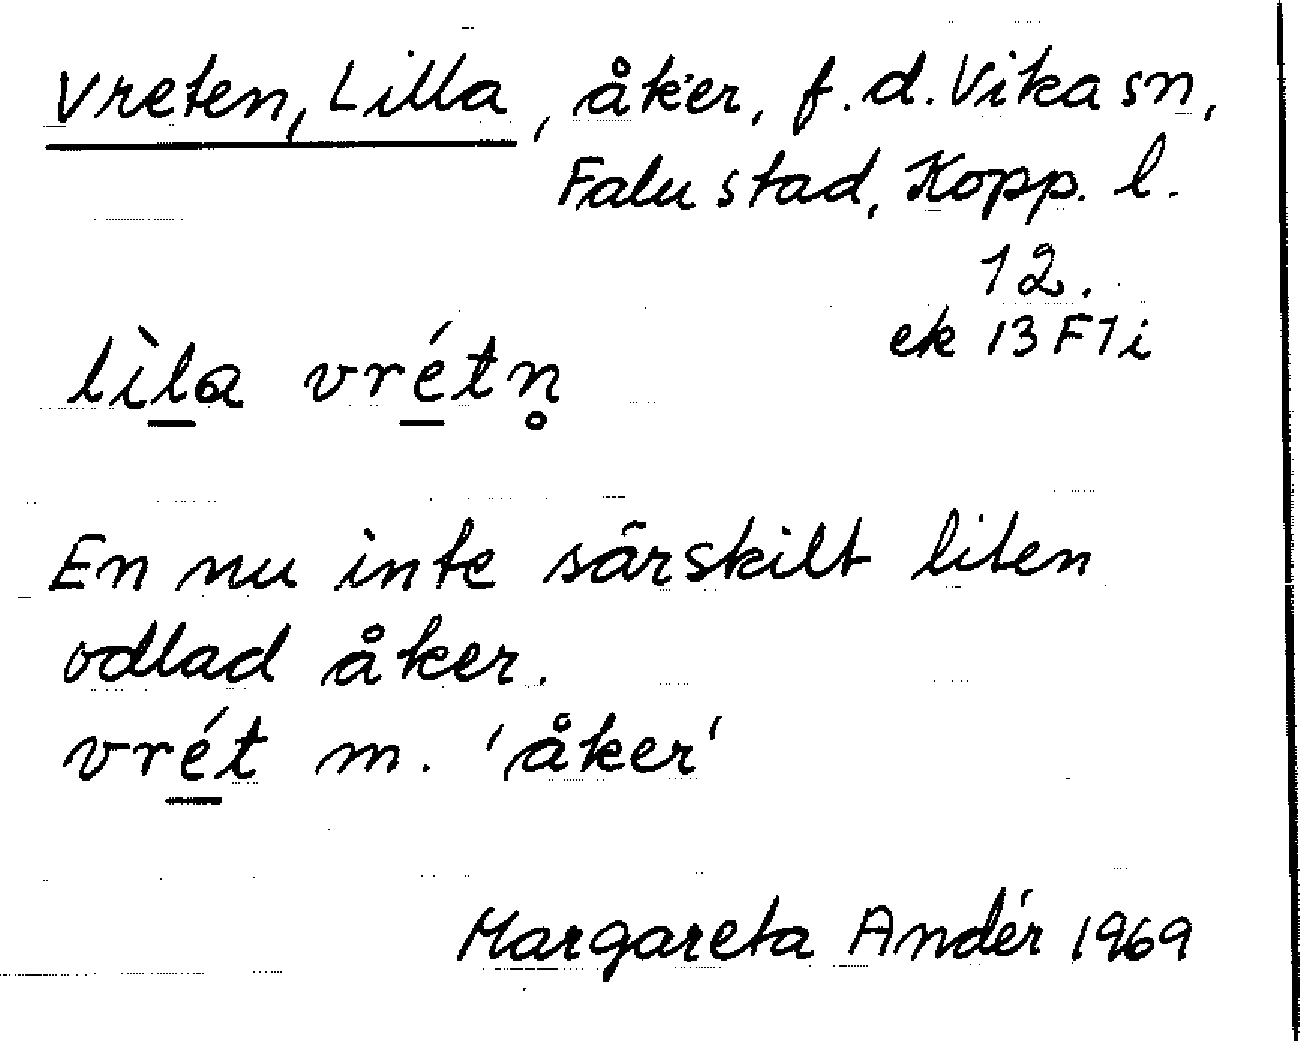 Vreten, Lilla, åker, f.d. Vika sn,
Falu stad, Kopp. l.
12.
ek 13F7i
lìl̲a vré̲tn̥
En nu inte särskilt liten
odlad åker.
vré̲t m. 'åker'
Margareta Andér 1969